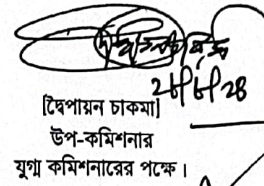 ২৮/৮/২৪
[দ্বৈপায়ন চাকমা]
উপ-কমিশনার
যুগ্ম কমিশনারের পক্ষে।